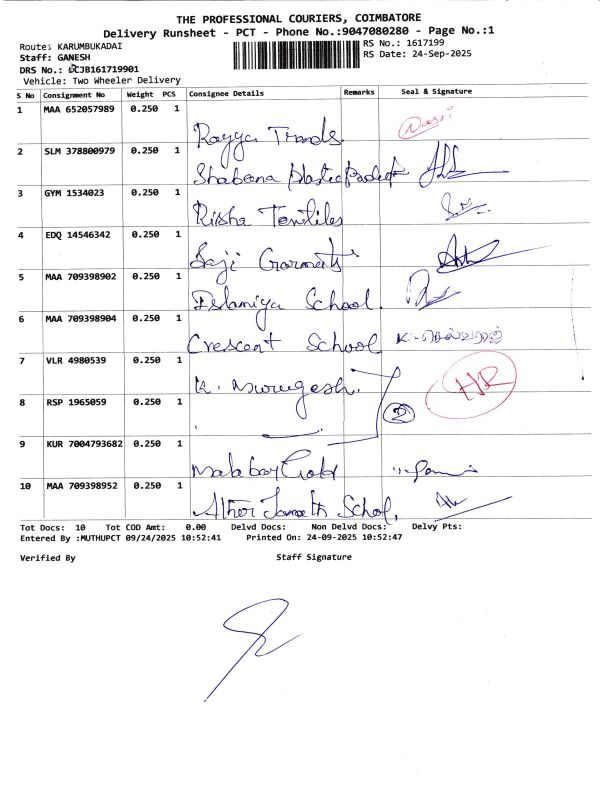 THE PROFESSIONAL COURIERS, COIMBATORE
Delivery Runsheet - PCT - Phone No.:9047080280 - Page No.:1
Route: KARUMBUKADAI
RS No.: 1617199
Staff: GANESH
RS Date: 24-Sep-2025
DRS No.: CJB161719901
Vehicle: Two Wheeler Delivery
S No Consignment No Weight PCS Consignee Details Remarks Seal & Signature
1 MAA 652057989 0.250 1
Rayya Trends
2 SLM 378800979 0.250 1
Shabeena Plastic
3 GYM 1534023 0.250 1
Risha Textiles
4 EDQ 14546342 0.250 1
Saji Garments
5 MAA 709398902 0.250 1
Islamiya School
6 MAA 709398904 0.250 1
Crescent School க. செல்வராஜ்
7 VLR 4980539 0.250 1
K. Murugesh. HR
8 RSP 1965059 0.250 1
2
9 KUR 7004793682 0.250 1
Malabar Gold
10 MAA 709398952 0.250 1
School.
Tot Docs: 10 Tot COD Amt: 0.00 Delvd Docs: Non Delvd Docs: Delvy Pts:
Entered By :MUTHUPCT 09/24/2025 10:52:41 Printed On: 24-09-2025 10:52:47
Verified By Staff Signature